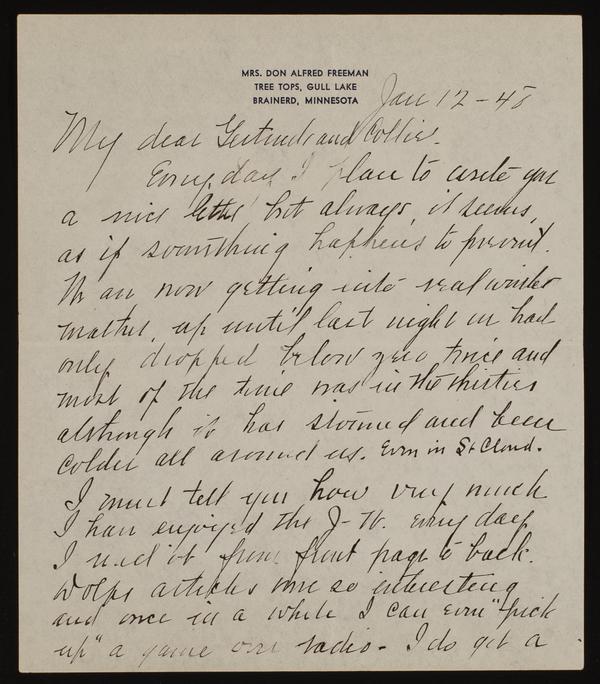 MRS. DON ALFRED FREEMAN
TREE TOPS, GULL LAKE
BRAINERD, MINNESOTA
Jan 12 - 48
My dear Gertrude and Collie.
Every day I plan to write you
a nice letter but always, it seems,
as if something happens to prevent.
We are now getting into real winter
weather, up until last night we had
only dropped below zero twice and
most of the time was in the thirties
although it has stormed and been
colder all around us. Even in St Cloud.
I must tell you how very much
I have enjoyed the J-W. Every day
I read it from front page to back.
Wolfs articles are so interesting
and once in a while I can even "pick
up" a game over radio - I do get a